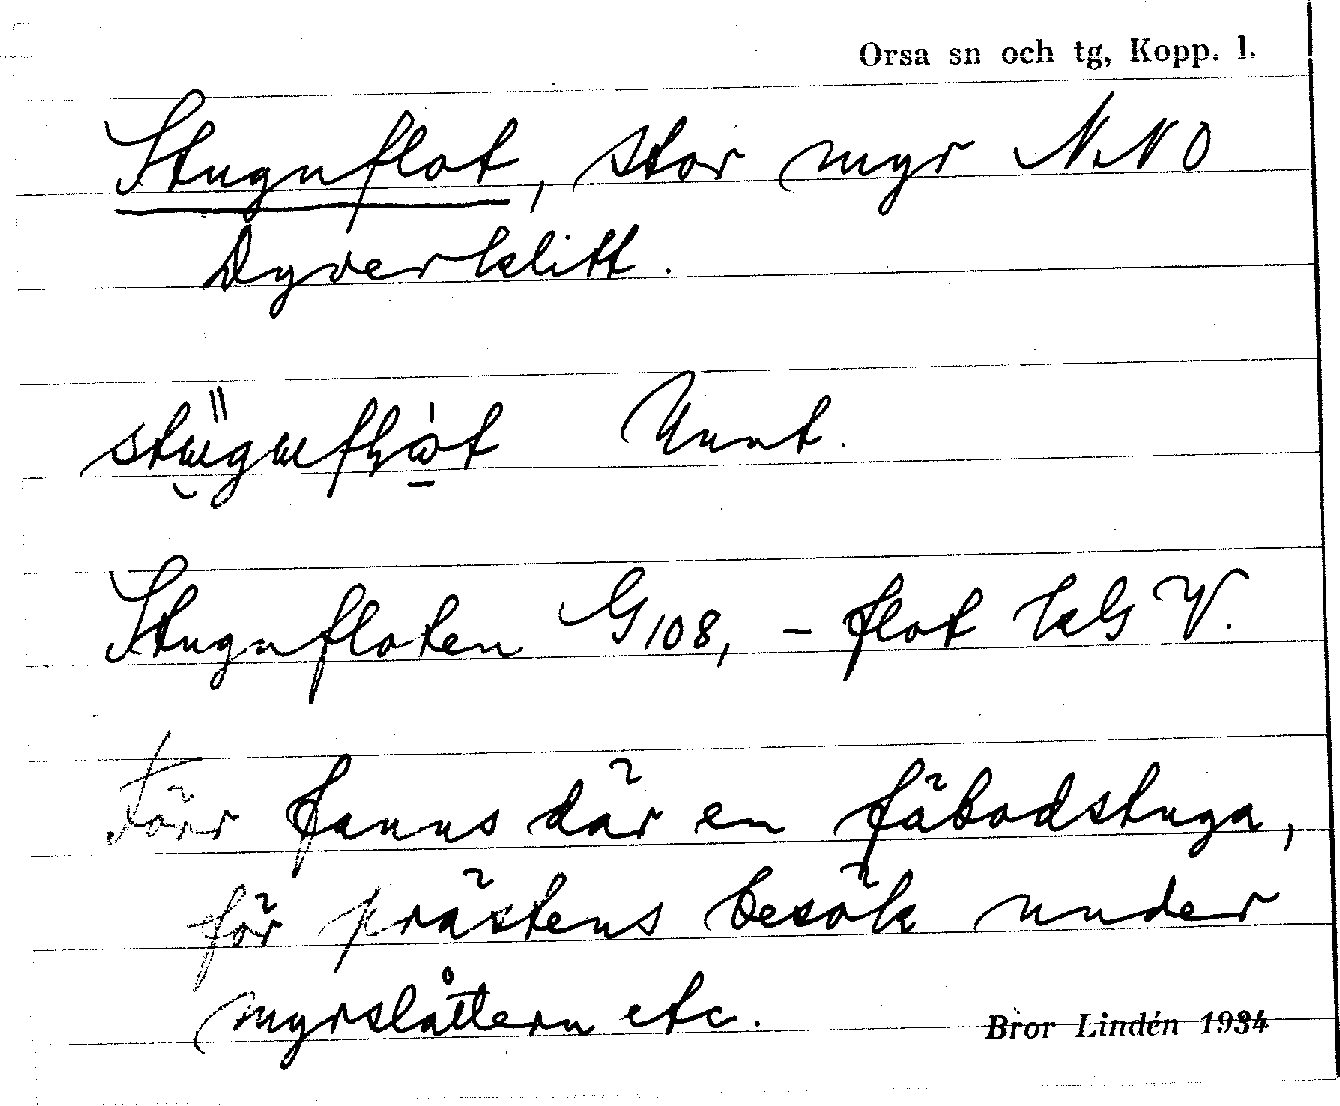 Orsa sn och tg, Kopp. l.
Stugnflot, stor myr N.N O
Dyverklitt.
Unnt.
Stugnfloten G108, – flot kG V.
Förr fanns där en fäbodstuga,
för prästens besök under
myrslåttern etc.
Bror Lindén 1934